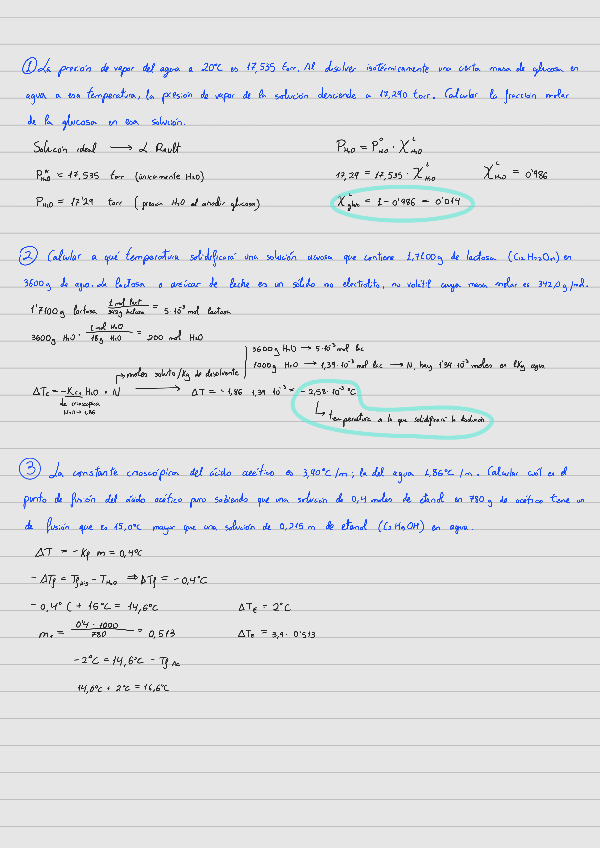 ① La presión de vapor del agua a 20°C es 17,535 torr. Al disolver isotérmicamente una cierta masa de glucosa en
agua a esa temperatura, la presión de vapor de la solución desciende a 17,290 torr. Calcular la fracción molar
de la glucosa en esa solución.
Solución ideal ⟶ L Rault
P_H₂O = P°_H₂O · X^L_H₂O
P*_H₂O = 17,535 torr (únicamente H₂O)
17,29 = 17,535 · X^L_H₂O
X^L_H₂O = 0'986
P_H₂O = 17'29 torr (presión H₂O al añadir glucosa)
X^L_gluc = 1 - 0'986 = 0'014
② Calcular a qué temperatura solidificará una solución acuosa que contiene 1,7100 g de lactosa (C₁₂H₂₂O₁₁) en
3600 g de agua. La lactosa o azúcar de leche es un sólido no electrolito, no volátil cuya masa molar es 342,0 g/mol.
1'7100 g lactosa · 1 mol lact / 342g lactosa = 5·10⁻³ mol lactosa
3600g H₂O · 1 mol H₂O / 18g H₂O = 200 mol H₂O
3600g H₂O → 5·10⁻³ mol lac
1000g H₂O → 1,39·10⁻³ mol lac → N, hay 1'39·10⁻³ moles en 1Kg agua
↱ moles soluto/Kg de disolvente
ΔTc = -Kc H₂O · N ⟶ ΔT = -1,86 · 1,39·10⁻³ = -2,58·10⁻³ °C
cte crioscópica
H₂O → 1,86
↳ temperatura a la que solidificará la disolución
③ La constante crioscópica del ácido acético es 3,90°C/m; la del agua 1,86°C/m. Calcular cuál es el
punto de fusión del ácido acético puro sabiendo que una solución de 0,4 moles de etanol en 780 g de acético tiene un
de fusión que es 15,0°C mayor que una solución de 0,215 m de etanol (C₂H₅OH) en agua.
ΔT = -Kf m = 0,4°C
- ΔTf = Tf dis - T_H₂O ⇒ ΔTf = -0,4°C
- 0,4°C + 15°C = 14,6°C
ΔTf = 2°C
m = 0'4 · 1000 / 780 = 0,513
ΔTf = 3,9 · 0'513
-2°C = 14,6°C - Tf Ac
14,6°C + 2°C = 16,6°C